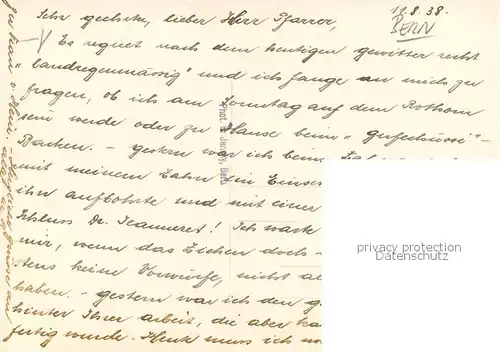 11.8.38.
BERN
Sehr geehrter, lieber Herr Pfarrer,
Es regnet nach dem heutigen Gewitter recht
"landregenmässig" und ich fange an mich zu
fragen, ob ich am Sonntag auf dem Rothorn
sein werde oder zu Hause beim "Gufechüssi"-
Backen. - Gestern war ich beim
mit meinem Zahn ein
ihn aufbohrte und mit einer
Schluss Dr. Jeanneret! Ich warte
mir, wenn das Zeichen doch
stens keine Vorwürfe, nicht
haben. - Gestern war ich den g
hinter Ihrer Arbeit, die aber
fertig wurde. Heute muss ich
privacy protection
Datenschutz